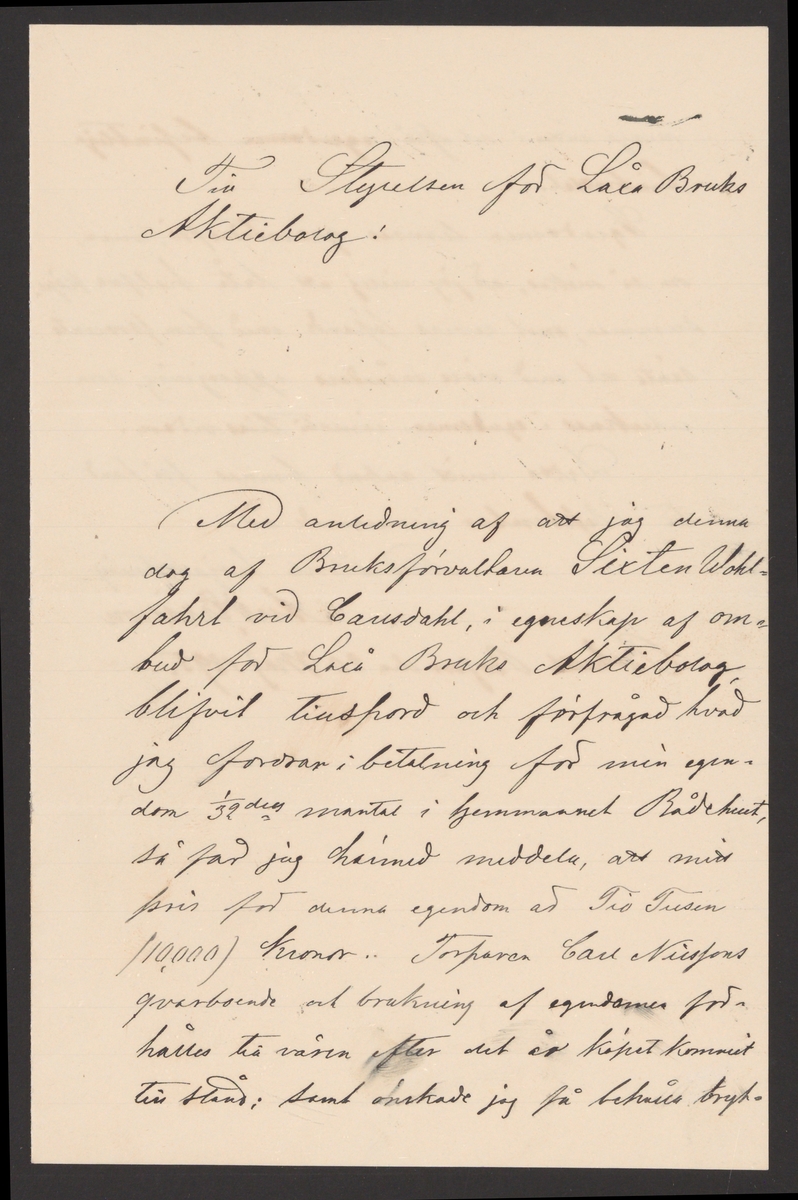 Till Styrelsen för Laxå Bruks
Aktiebolag!
Med anledning af att jag denna
dag af Bruksförvaltaren Sixten Wohl=
fahrt vid Carlsdahl, i egenskap af om=
bud för Laxå Bruks Aktiebolag,
blifvit tillspord och förfrågad hvad
jag fordrar i betalning för min egen=
dom 1/32 dels mantal i hemmanet
så får jag härmed meddela, att mitt
pris för denna egendom är Tio Tusen
(10,000) Kronor.. Torparen Carl Nilssons
qvarboende och brukning af egendomen för=
hålles till våren efter det år köpet kommit
till stånd; samt önskade jag få behålla bryt=